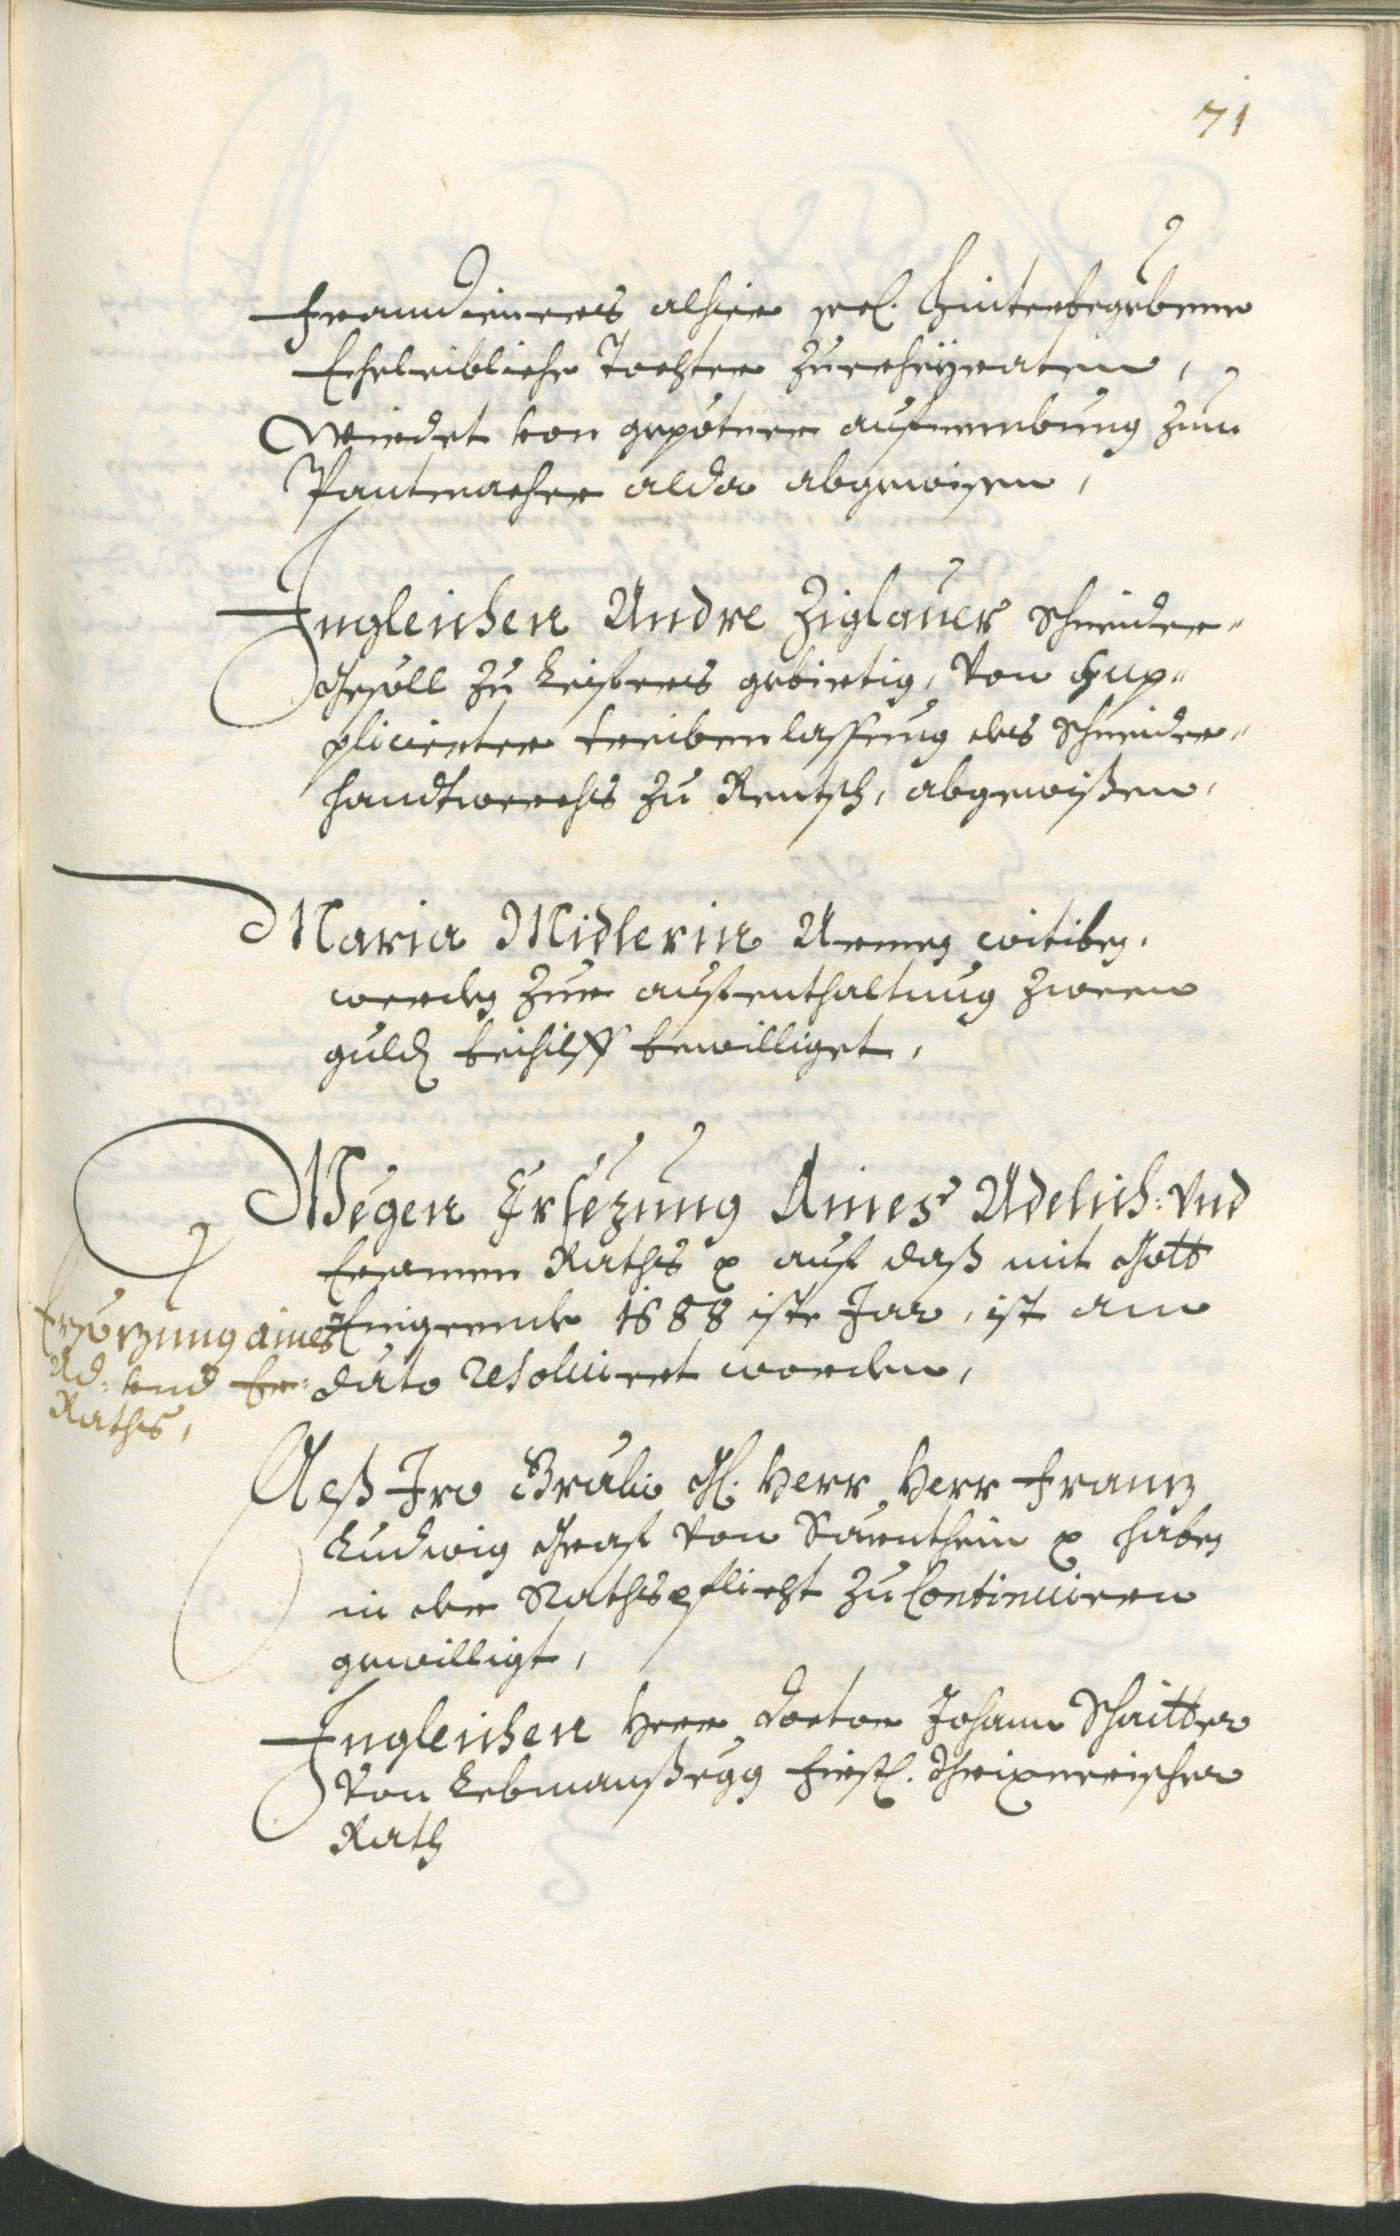 71
Fraundieners alhier seel. hinterbegebene
Eheleibliche Tochter zuerheÿraten,
Wirdet von gepötner aufnembung zum
Pantmacher alda abgewisen,
Ingleichen Andre Ziglauer Schneider„
Gesöll zu Leifers gebirtig, von Sup„
plicierter treibenlassung des Schneider„
handtwerchs zu Rentsch, abgewißen,
Maria Midlerin Armen witiben,
werden zur aufenthaltung zween
guld beihilff bewilliget,
Wegen Ersezung Aines Adelich: Vnd
Ersamen Raths auf daß mit Gott
Eingeende 1688 iste Jar, ist am
dato resoluirt worden,
Ersözung aines
Ad: vnd Er:
Raths,
Alß Iro Herr Herr Franz
Ludwig Graf von Särnthein haben
in der Rathspflicht zu Continuiren
gewilligt,
Ingleichen Herr Doctor Johann Schaitter
von Lebmanßegg Fürstl. Brixnerischer
Rath